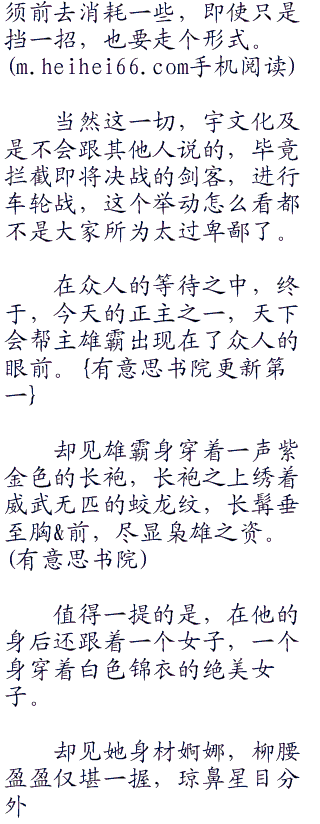 须前去消耗一些，即使只是
挡一招，也要走个形式。
(m.heihei66.com手机阅读)
当然这一切，宇文化及
是不会跟其他人说的，毕竟
拦截即将决战的剑客，进行
车轮战，这个举动怎么看都
不是大家所为太过卑鄙了。
在众人的等待之中，终
于，今天的正主之一，天下
会帮主雄霸出现在了众人的
眼前。{有意思书院更新第
一}
却见雄霸身穿着一声紫
金色的长袍，长袍之上绣着
威武无匹的蛟龙纹，长髯垂
至胸&前，尽显枭雄之资。
(有意思书院)
值得一提的是，在他的
身后还跟着一个女子，一个
身穿着白色锦衣的绝美女
子。
却见她身材婀娜，柳腰
盈盈仅堪一握，琼鼻星目分
外